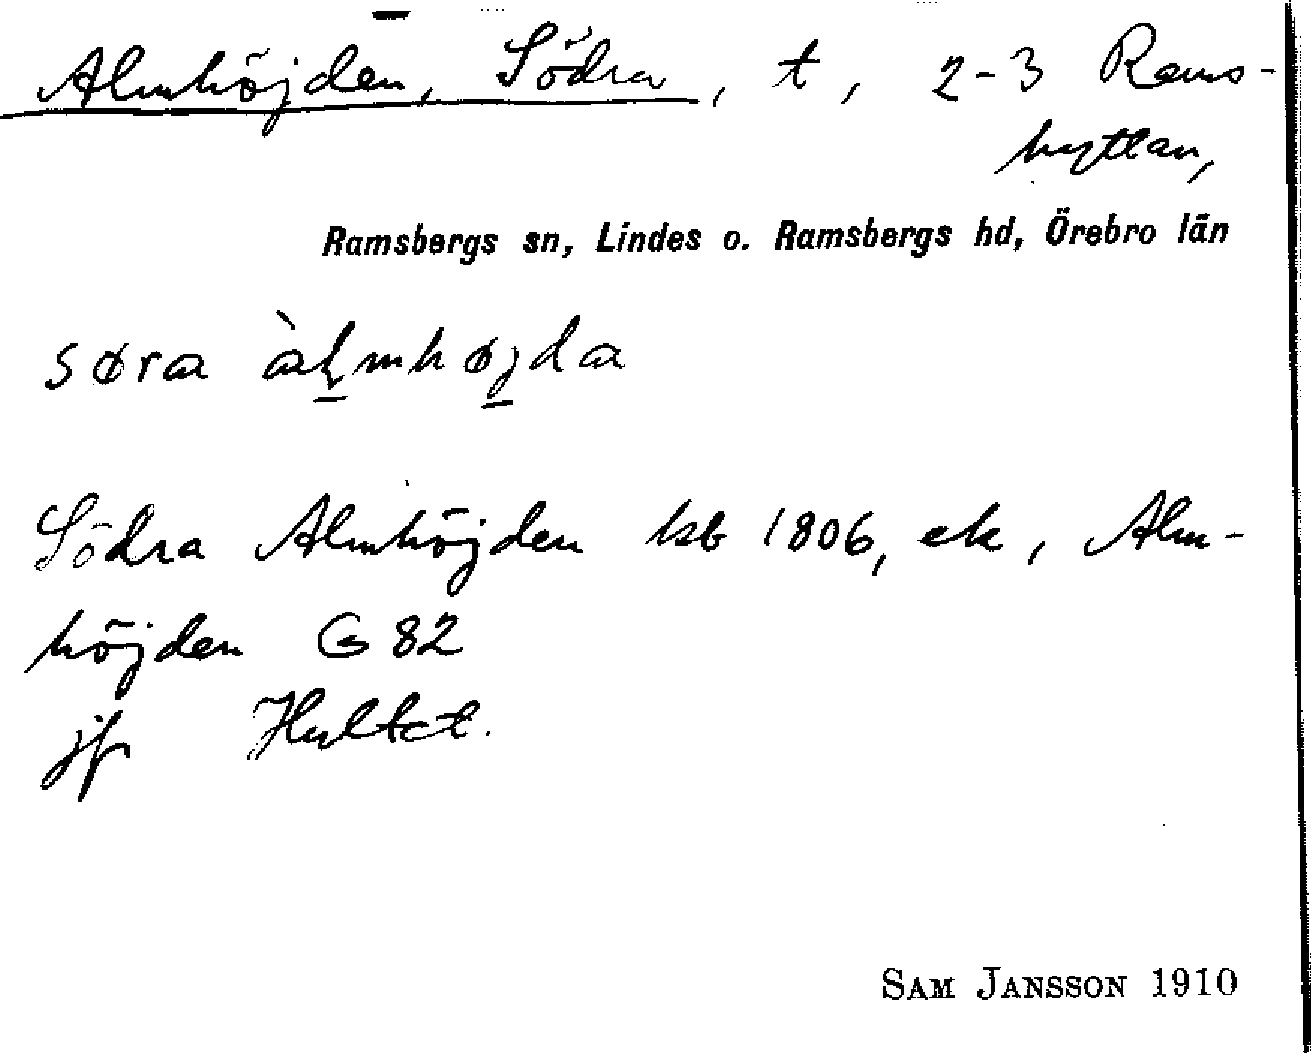 Almhöjden, Södra, t, 2-3 Rams-
hyttan,
Ramsbergs sn, Lindes o. Ramsbergs hd, Örebro län
søra àl̠mhøj̠da
Södra Almhöjden kb 1806, ek, Alm-
höjden G 82
jf Hultet.
SAM JANSSON 1910